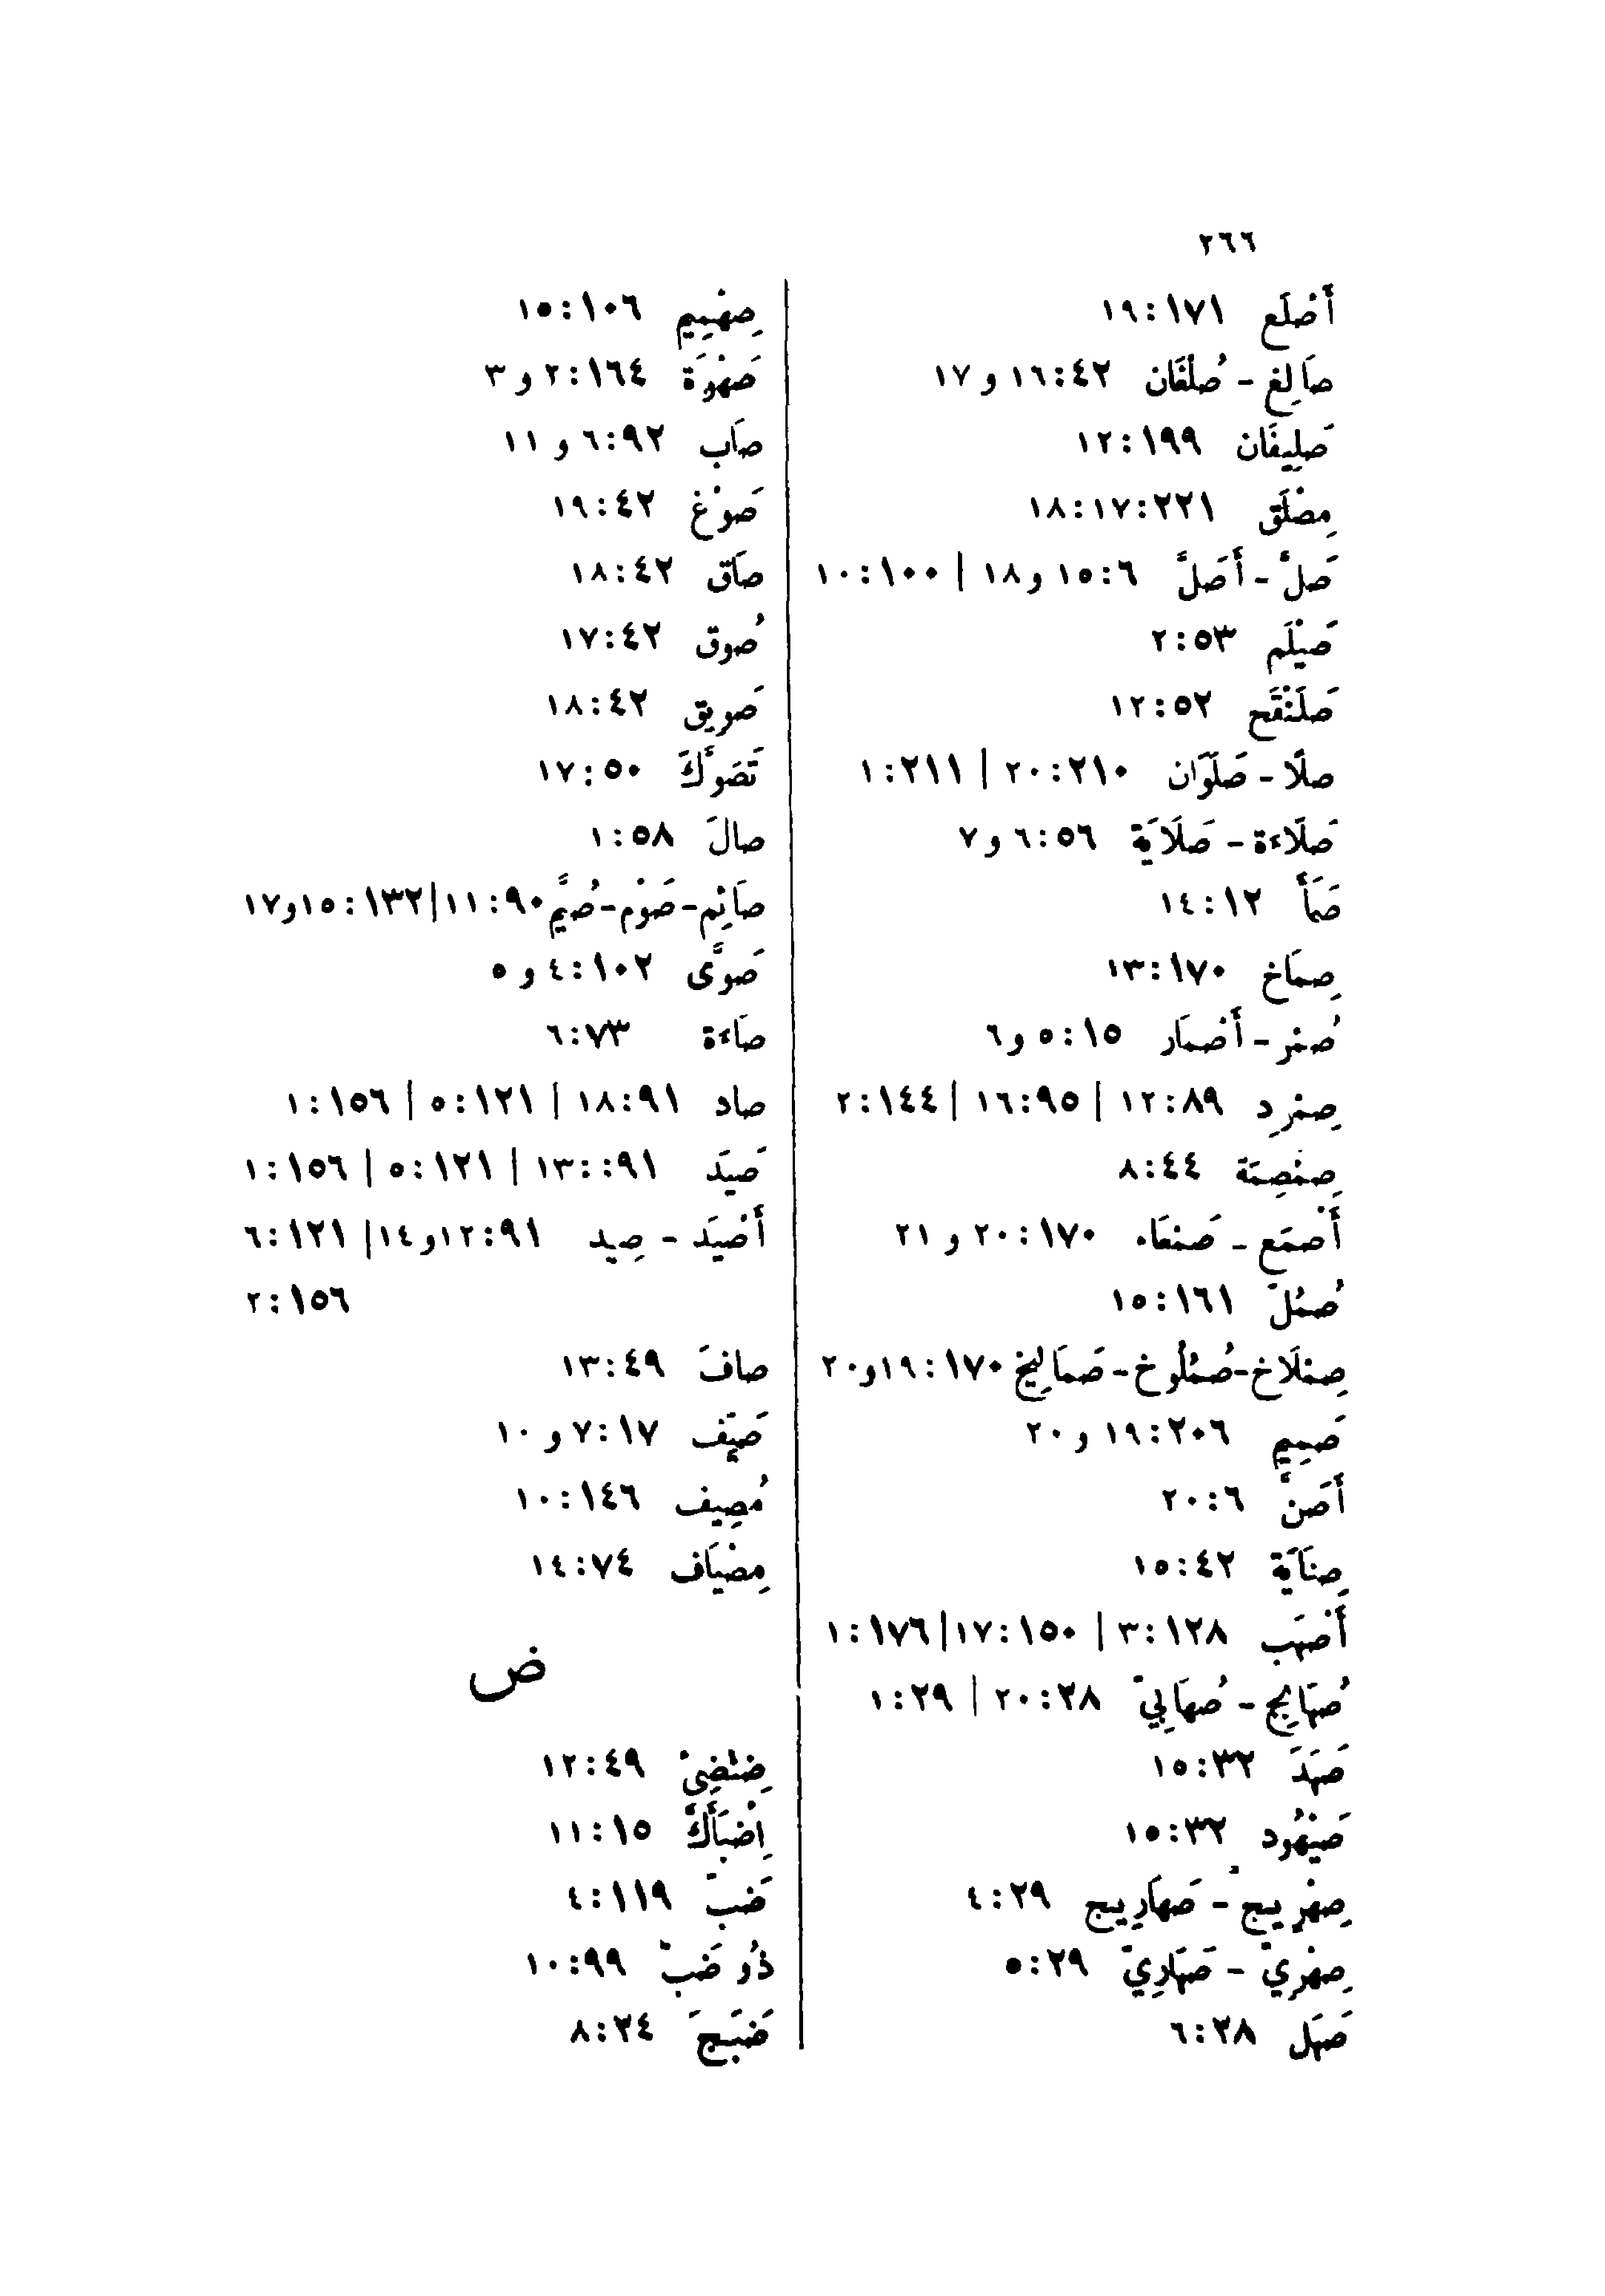 ٢٦٦
أَصْلَع ١٧١:١٩
صَالِغ - صُلْغَان ٤٢:١٦ و ١٧
صَلِيفَان ١٩٩:١٢
مِصْلَق ٢٢١:١٧:١٨
صَلَّ - أَصَلَّ ٦:١٥ و١٨ | ١٠٠:١٠
صَيْلَم ٥٣:٢
صَلَنْقَح ٥٢:١٢
صلًا - صَلَوَان ٢١٠:٢٠ | ٢١١:١
صَلَاءَة - صَلَايَة ٥٦:٦ و ٧
صَمَأَ ١٢:١٤
صِمَاخ ١٧٠:١٣
صُمْر - أَصْمَار ١٥:٥ و ٦
صِمْرِد ٨٩:١٢ | ٩٥:١٦ | ١٤٤:٢
صِمْصِمَة ٤٤:٨
أَصْمَع - صَمْعَاء ١٧٠:٢٠ و ٢١
صُمُلّ ١٦١:١٥
صِمْلَاخ - صُمْلُوخ - صَمَالِيخ ١٧٠:١٩ و٢٠
صَمِيم ٢٠٦:١٩ و ٢٠
أَصَنَّ ٦:٢٠
صِنَايَة ٤٢:١٥
أَصْهَب ١٢٨:٣ | ١٥٠:١٧ | ١٧٦:١
صُهَابِج - صُهَابِيّ ٢٨:٢٠ | ٢٩:١
صَهَدَ ٣٢:١٥
صَيْهُود ٣٢:١٥
صِهْرِيج - صَهَارِيج ٢٩:٤
صِهْرِيّ - صَهَارِيّ ٢٩:٥
صَهَل ٢٨:٦
صِهْمِيم ١٠٦:١٥
صَهْوَة ١٦٤:٢ و ٣
صَاب ٩٢:٦ و ١١
صَوْغ ٤٢:١٩
صَاق ٤٢:١٨
صُوق ٤٢:١٧
صَوِيق ٤٢:١٨
تَصَوَّكَ ٥٠:١٧
صالَ ٥٨:١
صَائِم - صَوْم - صُيَّم ٩٠:١١ | ١٣٢:١٥ و١٧
صَوَّى ١٠٢:٤ و ٥
صَاءَة ٧٣:٦
صاد ٩١:١٨ | ١٢١:٥ | ١٥٦:١
صَيَد ٩١::١٣ | ١٢١:٥ | ١٥٦:١
أَصْيَد - صِيد ٩١:١٢ و١٤ | ١٢١:٦
١٥٦:٢
صافَ ٤٩:١٣
صَيِّف ١٧:٧ و ١٠
مُصِيف ١٤٦:١٠
مِصْيَاف ٧٤:١٤
ض
ضِئْضِئ ٤٩:١٢
اِضْبَأَكَّ ١٥:١١
ضَبّ ١١٩:٤
ذُو ضَبّ ٩٩:١٠
ضَبَجَ ٢٤:٨